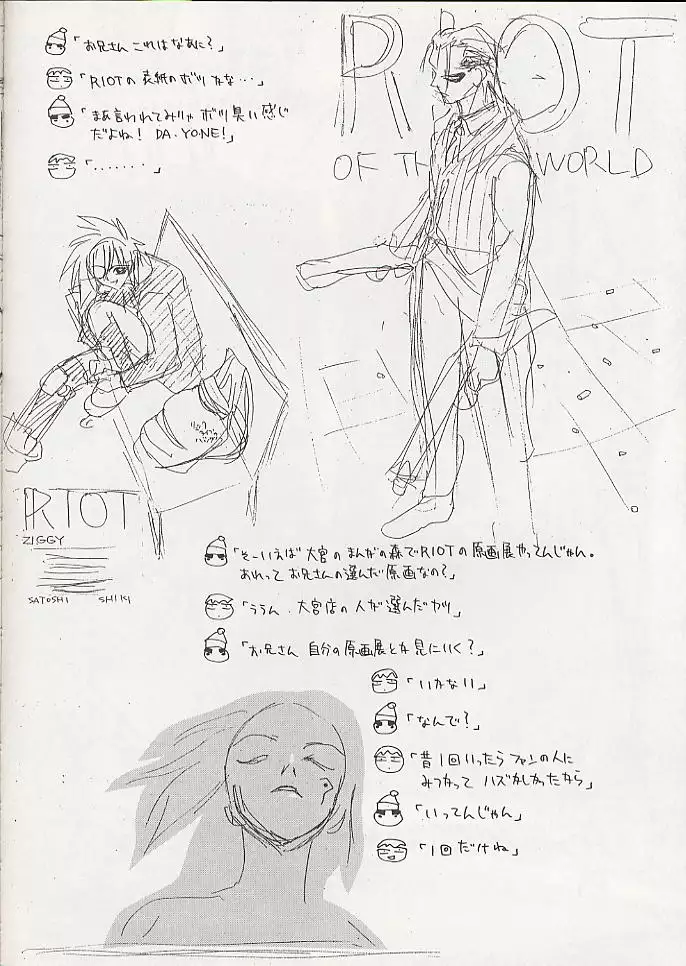 「お兄さん これはなあに?」
「RIOTの表紙のボツかな…」
「まあ言われてみりゃ ボツ臭い感じ
だよね! DA.YONE!」
「・・・・・・・」
RIOT
OF THE WORLD
RIOT
ZIGGY
SATOSHI SHIKI
「そーいえば 大宮のまんがの森でRIOTの原画展やってんじゃん。
あれって お兄さんの選んだ原画なの?」
「ううん、大宮店の人が選んだやつ」
「お兄さん 自分の原画展とか見にいく?」
「いかない」
「なんで?」
「昔1回いったら ファンの人に
みつかって ハズかしかったから」
「いってんじゃん」
「1回だけね」